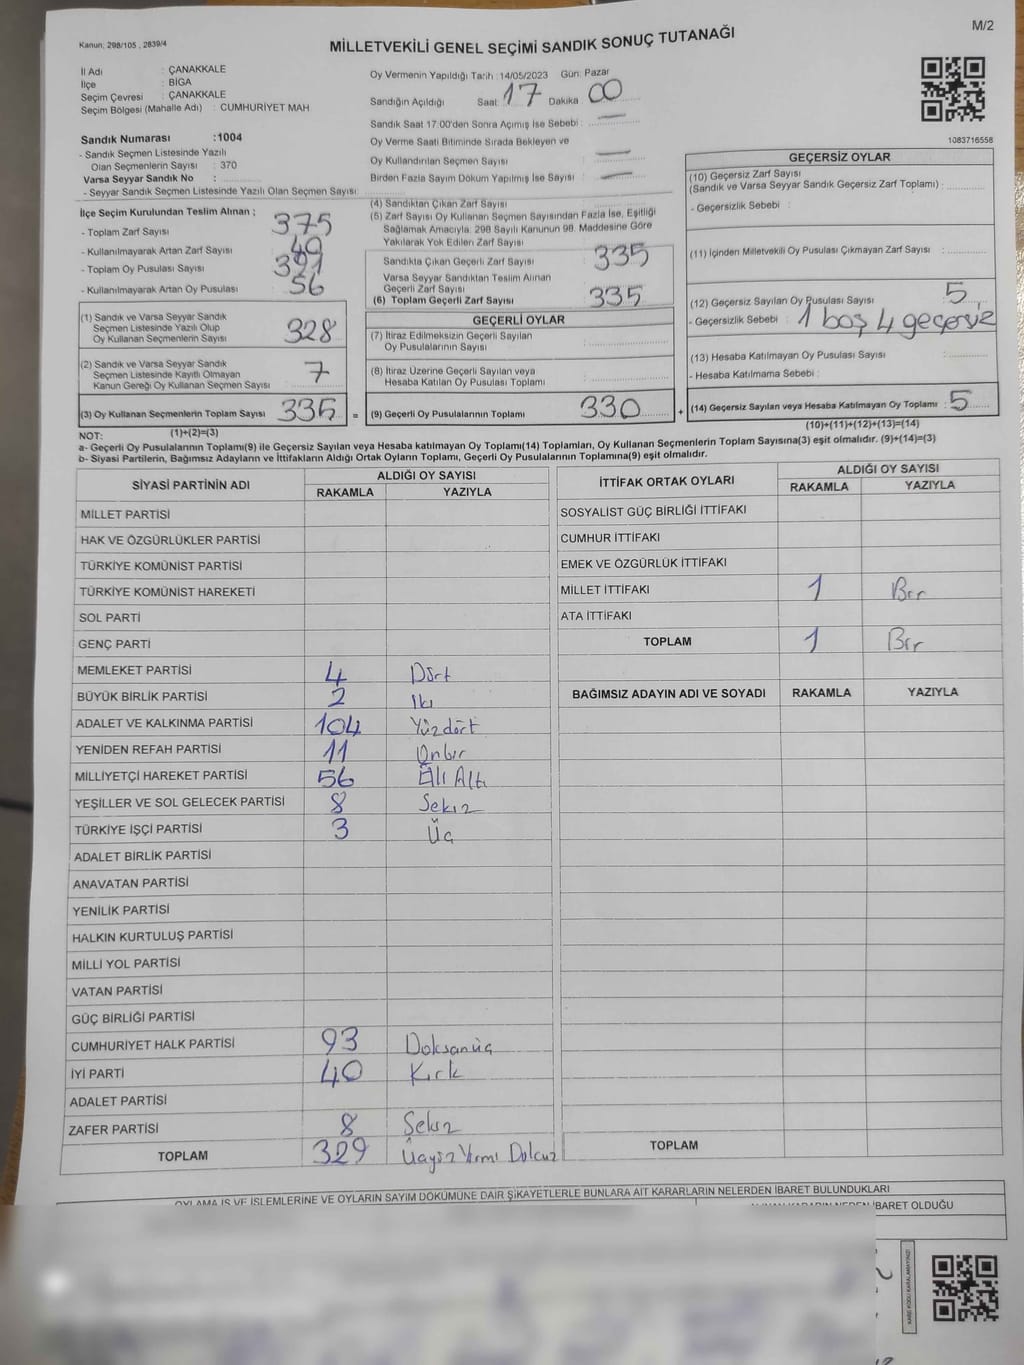 Kanun; 298/105 , 2839/4
MİLLETVEKİLİ GENEL SEÇİMİ SANDIK SONUÇ TUTANAĞI
M/2
İl Adı : ÇANAKKALE
İlçe : BİGA
Seçim Çevresi : ÇANAKKALE
Seçim Bölgesi (Mahalle Adı) : CUMHURİYET MAH
Sandık Numarası :1004
- Sandık Seçmen Listesinde Yazılı
Olan Seçmenlerin Sayısı : 370
Varsa Seyyar Sandık No :
- Seyyar Sandık Seçmen Listesinde Yazılı Olan Seçmen Sayısı:
Oy Vermenin Yapıldığı Tarih :14/05/2023 Gün: Pazar
Sandığın Açıldığı Saat: 17 Dakika 00
Sandık Saat 17:00'den Sonra Açılmış İse Sebebi : —
Oy Verme Saati Bitiminde Sırada Bekleyen ve
Oy Kullandırılan Seçmen Sayısı —
Birden Fazla Sayım Döküm Yapılmış İse Sayısı : —
1083716558
İlçe Seçim Kurulundan Teslim Alınan ;
- Toplam Zarf Sayısı : 375
- Kullanılmayarak Artan Zarf Sayısı : 40
- Toplam Oy Pusulası Sayısı : 391
- Kullanılmayarak Artan Oy Pusulası : 56
(1) Sandık ve Varsa Seyyar Sandık
Seçmen Listesinde Yazılı Olup
Oy Kullanan Seçmenlerin Sayısı 328
(2) Sandık ve Varsa Seyyar Sandık
Seçmen Listesinde Kayıtlı Olmayan
Kanun Gereği Oy Kullanan Seçmen Sayısı 7
(3) Oy Kullanan Seçmenlerin Toplam Sayısı 335 =
(1)+(2)=(3)
(4) Sandıktan Çıkan Zarf Sayısı :
(5) Zarf Sayısı Oy Kullanan Seçmen Sayısından Fazla İse, Eşitliği
Sağlamak Amacıyla; 298 Sayılı Kanunun 98. Maddesine Göre
Yakılarak Yok Edilen Zarf Sayısı :
Sandıkta Çıkan Geçerli Zarf Sayısı : 335
Varsa Seyyar Sandıktan Teslim Alınan
Geçerli Zarf Sayısı :
(6) Toplam Geçerli Zarf Sayısı : 335
GEÇERLİ OYLAR
(7) İtiraz Edilmeksizin Geçerli Sayılan
Oy Pusulalarının Sayısı :
(8) İtiraz Üzerine Geçerli Sayılan veya
Hesaba Katılan Oy Pusulası Toplamı :
(9) Geçerli Oy Pusulalarının Toplamı : 330 +
GEÇERSİZ OYLAR
(10) Geçersiz Zarf Sayısı
(Sandık ve Varsa Seyyar Sandık Geçersiz Zarf Toplamı) :
- Geçersizlik Sebebi :
(11) İçinden Milletvekili Oy Pusulası Çıkmayan Zarf Sayısı :
(12) Geçersiz Sayılan Oy Pusulası Sayısı : 5
- Geçersizlik Sebebi : 1 boş 4 geçersiz
(13) Hesaba Katılmayan Oy Pusulası Sayısı :
- Hesaba Katılmama Sebebi :
(14) Geçersiz Sayılan veya Hesaba Katılmayan Oy Toplamı : 5
(10)+(11)+(12)+(13)=(14)
NOT:
a- Geçerli Oy Pusulalarının Toplamı(9) ile Geçersiz Sayılan veya Hesaba katılmayan Oy Toplamı(14) Toplamları, Oy Kullanan Seçmenlerin Toplam Sayısına(3) eşit olmalıdır. (9)+(14)=(3)
b- Siyasi Partilerin, Bağımsız Adayların ve İttifakların Aldığı Ortak Oyların Toplamı, Geçerli Oy Pusulalarının Toplamına(9) eşit olmalıdır.
SİYASİ PARTİNİN ADI ALDIĞI OY SAYISI
RAKAMLA YAZIYLA
MİLLET PARTİSİ
HAK VE ÖZGÜRLÜKLER PARTİSİ
TÜRKİYE KOMÜNİST PARTİSİ
TÜRKİYE KOMÜNİST HAREKETİ
SOL PARTİ
GENÇ PARTİ
MEMLEKET PARTİSİ 4 Dört
BÜYÜK BİRLİK PARTİSİ 2 İki
ADALET VE KALKINMA PARTİSİ 104 Yüzdört
YENİDEN REFAH PARTİSİ 11 Onbir
MİLLİYETÇİ HAREKET PARTİSİ 56 Elli Altı
YEŞİLLER VE SOL GELECEK PARTİSİ 8 Sekiz
TÜRKİYE İŞÇİ PARTİSİ 3 Üç
ADALET BİRLİK PARTİSİ
ANAVATAN PARTİSİ
YENİLİK PARTİSİ
HALKIN KURTULUŞ PARTİSİ
MİLLİ YOL PARTİSİ
VATAN PARTİSİ
GÜÇ BİRLİĞİ PARTİSİ
CUMHURİYET HALK PARTİSİ 93 Doksanüç
İYİ PARTİ 40 Kırk
ADALET PARTİSİ
ZAFER PARTİSİ 8 Sekiz
TOPLAM 329 Üçyüz Yirmi Dokuz
İTTİFAK ORTAK OYLARI ALDIĞI OY SAYISI
RAKAMLA YAZIYLA
SOSYALİST GÜÇ BİRLİĞİ İTTİFAKI
CUMHUR İTTİFAKI
EMEK VE ÖZGÜRLÜK İTTİFAKI
MİLLET İTTİFAKI 1 Bir
ATA İTTİFAKI
TOPLAM 1 Bir
BAĞIMSIZ ADAYIN ADI VE SOYADI RAKAMLA YAZIYLA
TOPLAM
OYLAMA İŞ VE İŞLEMLERİNE VE OYLARIN SAYIM DÖKÜMÜNE DAİR ŞİKAYETLERLE BUNLARA AİT KARARLARIN NELERDEN İBARET BULUNDUKLARI
İBARET OLDUĞU
KARE KODU KARALAMAYINIZ!